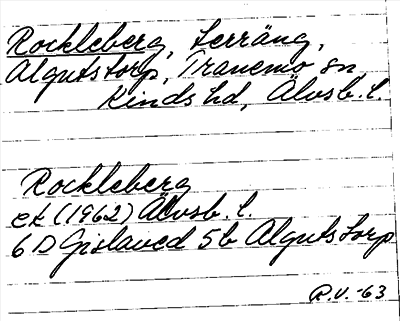 Rockleberg, terräng,
Algutstorp, Tranemo sn,
Kinds hd, Älvsb. l.
Rockleberg
ek (1962) Älvsb. l.
6 D Gislaved 5b Algutstorp
R.V. -63